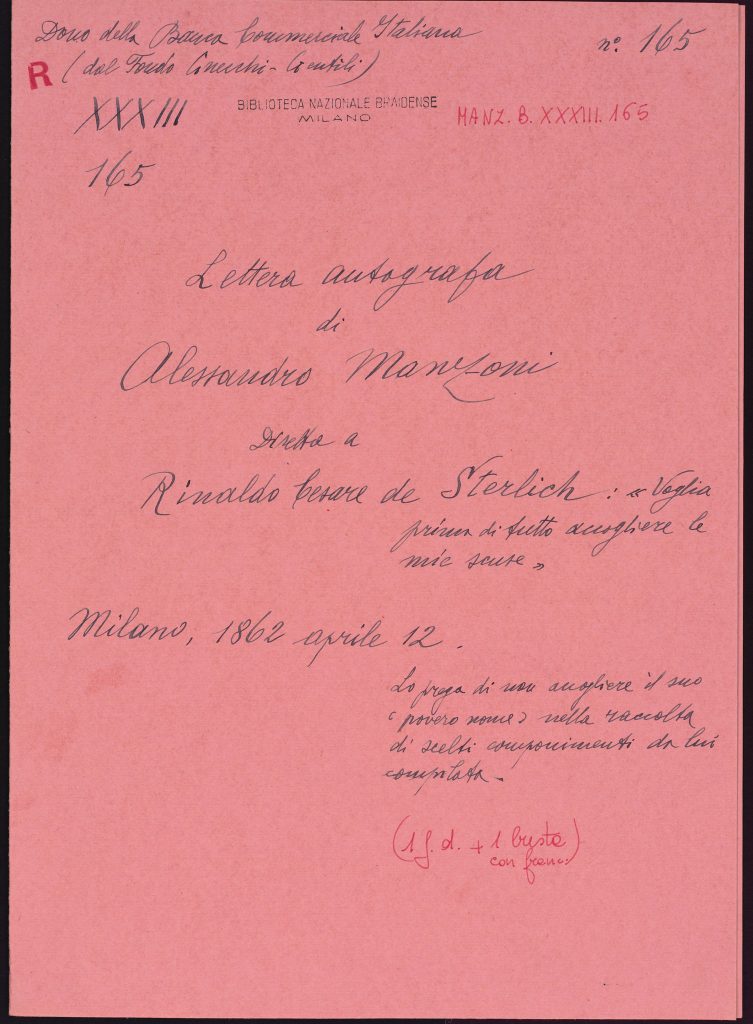 Dono della Banca Commerciale Italiana
n° 165
(dal Fondo Cinecchi-Gentili)
R
XXXIII
BIBLIOTECA NAZIONALE BRAIDENSE
MILANO
MANZ. B. XXXIII. 165
165
Lettera autografa
di
Alessandro Manzoni
Diretta a
Rinaldo Cesare de Sterlich : « Voglia
prima di tutto accogliere le
mie scuse »
Milano, 1862 aprile 12.
Lo prega di non accogliere il suo
‹ povero nome › nella raccolta
di scelti componimenti da lui
compilata.
(1 f. d. + 1 busta)
con franc.